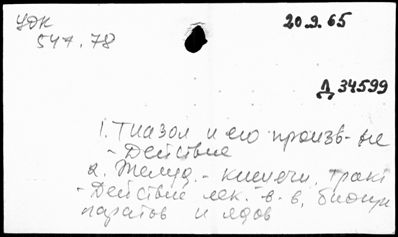 УДК
547.78
20.9.65
Д 34599
1. Тиазол и его произв-ые
- Действие
2. Желуд.-кишечн. тракт
- Действие лек. в-в, биопре
паратов и ядов